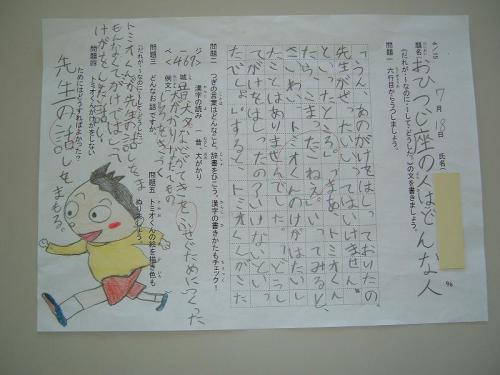 7月18日
題名 おひつじ座の人はどんな人
氏名
96
(だれが〜なのに〜して〜どうした。)の文を書きましょう。
問題一 六行目からうつしましょう。
「うん、あのがけをはしっておりたの。
先生がぜったいいってはいけません。
といったところ」「まあ、トミオくん
たら、こまったこねえ」いってみると、
さいわい、トミオくんのけがはたいし
たことはありませんでした。「どうし
てがけをはしったの?いけないといっ
たでしょ。」すると、トミオくんがこた
問題二 つぎの言葉はどんなこと、辞書をひこう。漢字の書きかたもチェック!
漢字の読み 一 昔、大がかり
<469>
城 昔 などてきをふせぐためにつくった
大がかりなたてもの
例文 しろをきずく
問題三 どんなお話ですか。
(だれが〜なのに〜してどうした)
トミオくんが先生の話しを
なくてがけではしって
けがをした話し。
問題四 トミオくんがけがをしない
ためにはどうすればよかった?
先生の話しをまもる。
問題五 トミオくんの絵を描き色も
ぬりましょう